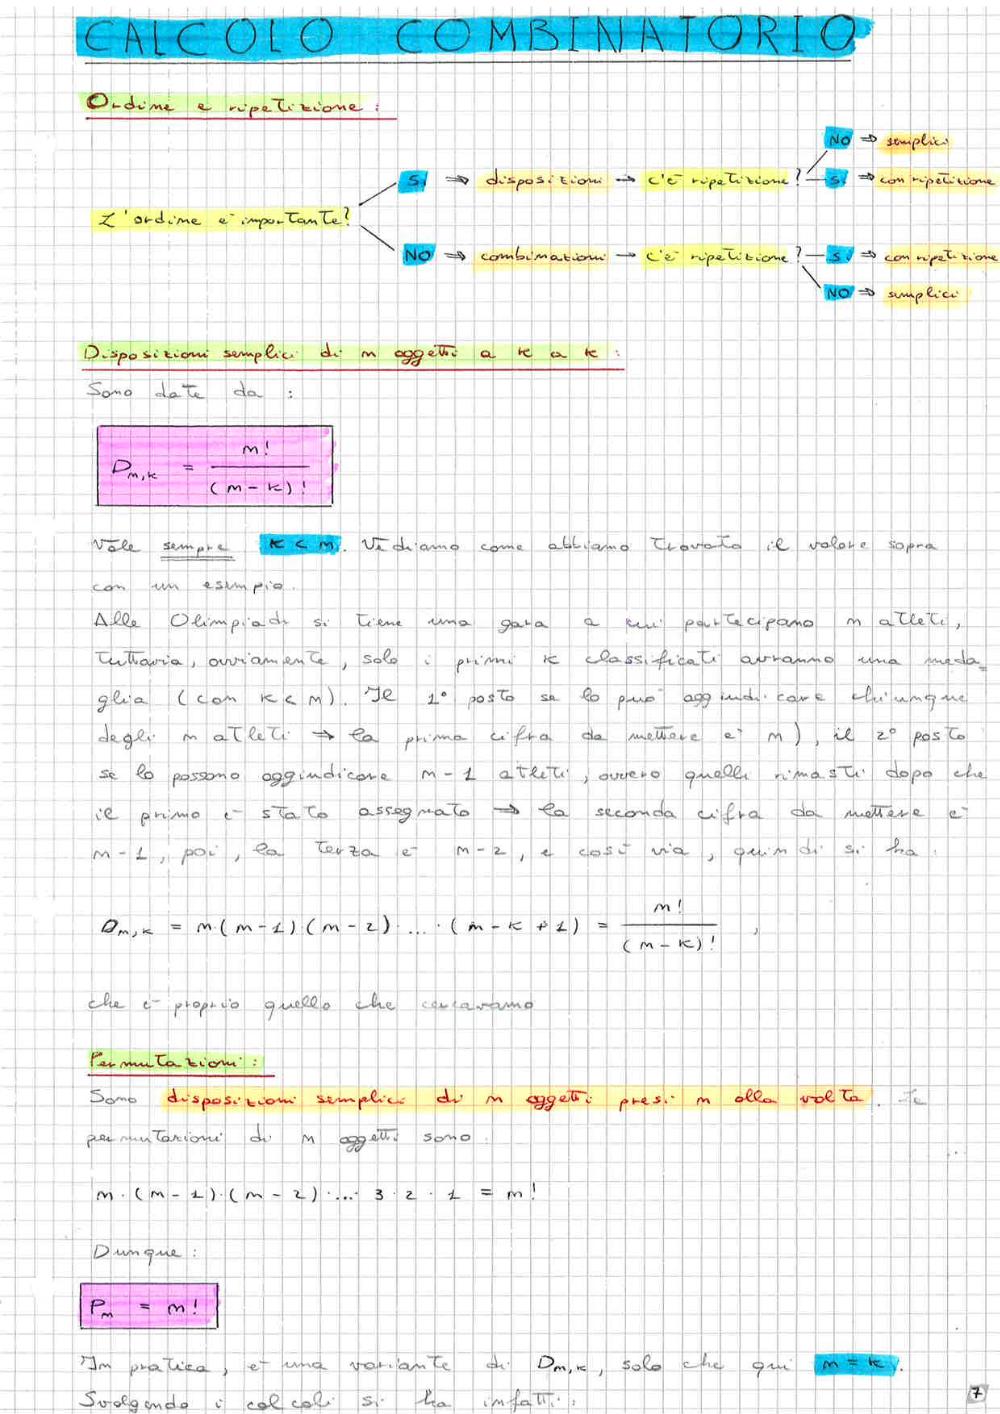 CALCOLO COMBINATORIO
Ordine e ripetizione:
NO ⇒ semplici
Sì ⇒ disposizioni → c'è ripetizione? Sì ⇒ con ripetizione
L'ordine è importante?
NO ⇒ combinazioni → c'è ripetizione? Sì ⇒ con ripetizione
NO ⇒ semplici
Disposizioni semplici di n oggetti a k a k:
Sono date da:
D_{n,k} = n! / (n-k)!
Vale sempre k < n. Vediamo come abbiamo trovato il valore sopra
con un esempio.
Alle Olimpiadi si tiene una gara a cui partecipano n atleti,
tuttavia, ovviamente, solo i primi k classificati avranno una meda=
glia (con k<n). Il 1° posto se lo può aggiudicare chiunque
degli n atleti ⇒ la prima cifra da mettere è n), il 2° posto
se lo possono aggiudicare n-1 atleti, ovvero quelli rimasti dopo che
il primo è stato assegnato ⇒ la seconda cifra da mettere è
n-1, poi, la terza è n-2, e così via, quindi si ha:
D_{n,k} = n·(n-1)·(n-2)·...·(n-k+1) = n! / (n-k)! ,
che è proprio quello che cercavamo
Permutazioni:
Sono disposizioni semplici di n oggetti presi n alla volta. Le
permutazioni di n oggetti sono:
n·(n-1)·(n-2)·...·3·2·1 = n!
Dunque:
P_n = n!
In pratica, è una variante di D_{n,k}, solo che qui n=k.
Svolgendo i calcoli si ha infatti:
7